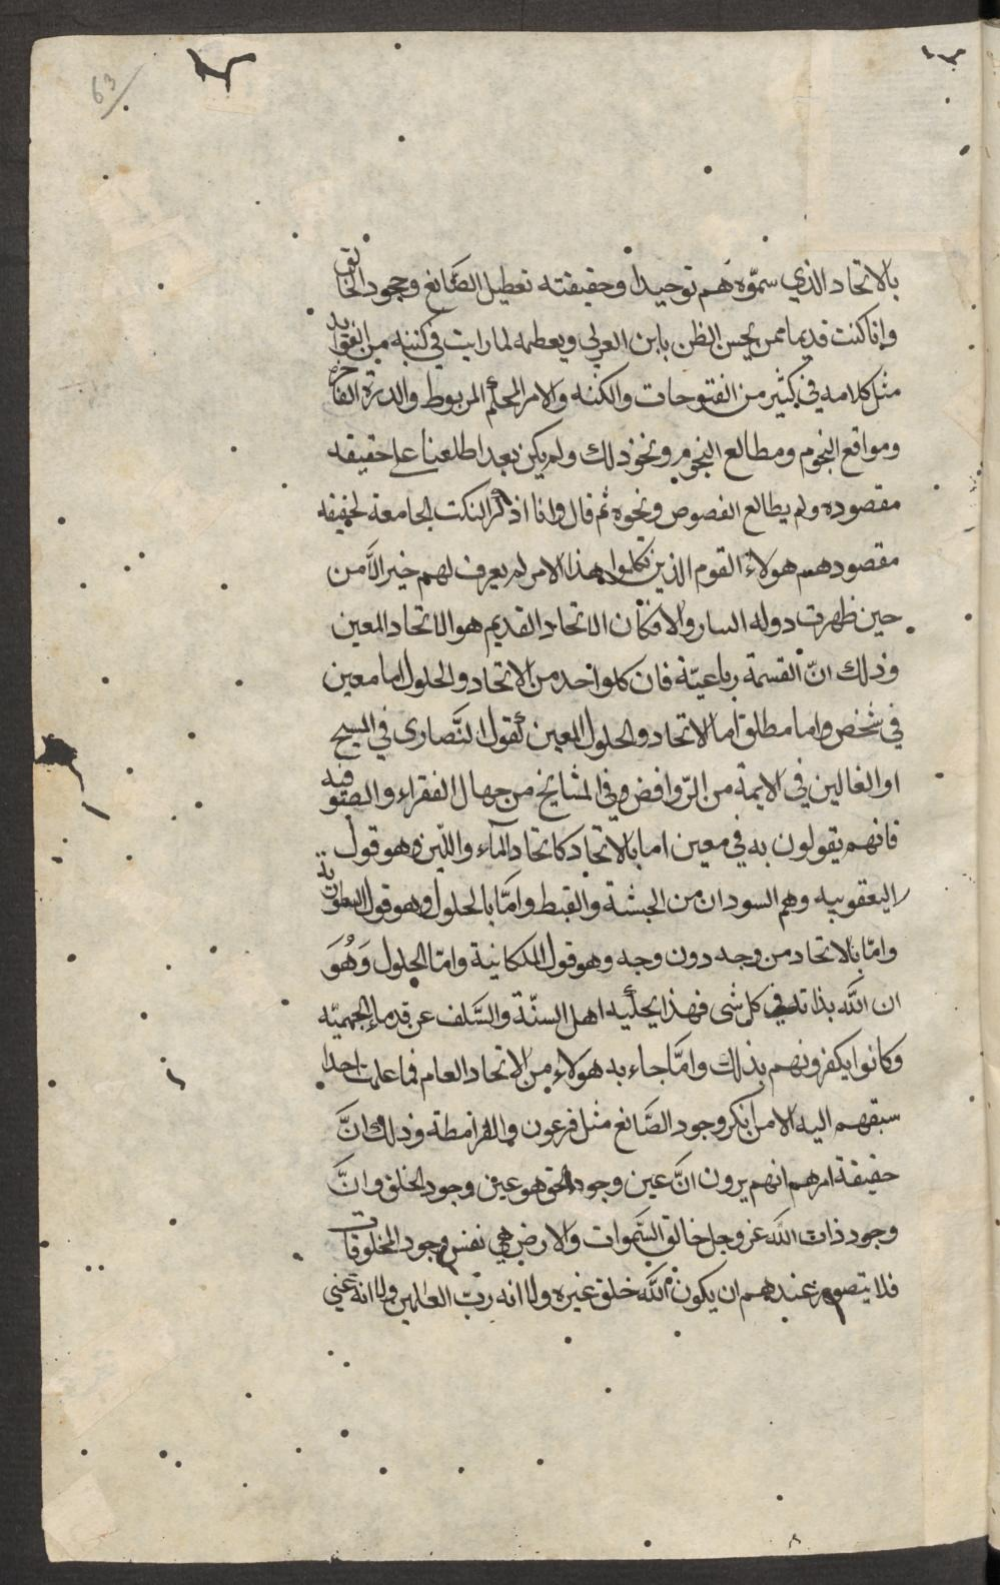 63
بالاتحاد الذي سموه هم توحيدا وحقيقته تعطيل الصانع وجحود الخالق
وانا كنت قديما ممن يحسن الظن بابن العربي ويعظمه لما رايت في كتبه من الفوايد
مثل كلامه في كثير من الفتوحات والكنه والامر المحكم المربوط والدرة الفاخرة
ومواقع النجوم ومطالع النجوم ونحو ذلك ولم يكن بعد اطلعنا على حقيقه
مقصوده ولم يطالع الفصوص ونحوه ثم قال وانا اذكر النكت الجامعة لحقيقه
مقصودهم هولاء القوم الذين تكلموا بهذا الامر لم يعرف لهم خبر الا من
حين ظهرت دوله التتار والا فكان الاتحاد القديم هو الاتحاد المعين
وذلك انّ القسمة رباعيّة فان كل واحد من الاتحاد والحلول اما معين
في شخص واما مطلق اما الاتحاد والحلول المعين كقول النّصارى في المسيح
او الغالين في الايمة من الرّوافض وفي المشايخ من جهال الفقراء والصوفيه
فانهم يقولون به في معين اما بالاتحاد كاتحاد المآء واللبن وهو قول
اليعقوبيه وهم السودان من الحبشة والقبط وامّا بالحلول وهو قول النسطورية
وامّا بالاتحاد من وجه دون وجه وهو قول الملكانية وامّا الحلول وَهُوَ
ان الله بذاته في كل شى فهذا يحكيه اهل السنّة والسّلف عن قدماء الجهميّه
وكانوا يكفرونهم بذلك وامّا جاء به هولاء من الاتحاد العام فما علمت احدا
سبقهم اليه الا من انكر وجود الصّانع مثل فرعون والقرامطة وذلك انَّ
حقيقة امرهم انهم يرون انَّ عين وجود الحق هو عين وجود الخلق وانَّ
وجود ذات الله عز وجل خالق السّموات والارض هي نفس وجود المخلوقات
فلا يتصور عندهم ان يكون الله خلق غيره ولا انه ربّ العالمين ولا انه غني